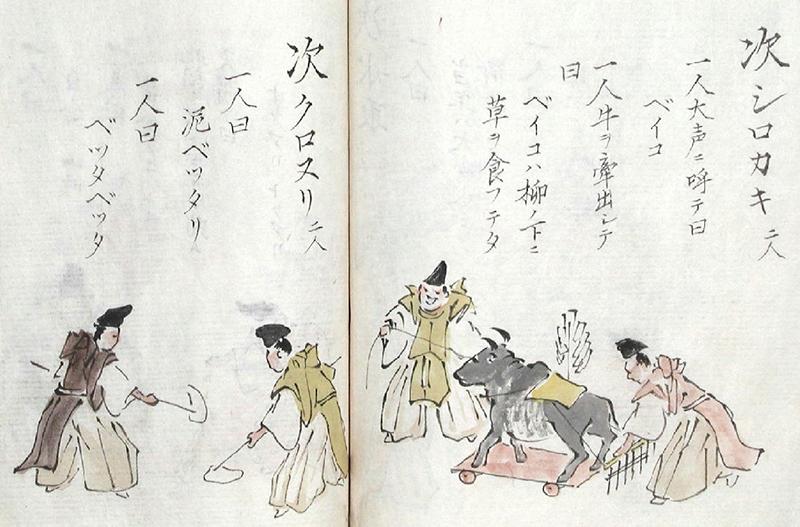 次シロカキ 二人
一人大声ニ呼テ曰
ベイコ
一人牛ヲ牽出シテ
曰
ベイコハ柳ノ下ニ
草ヲ食フテタ
次クロヌリ 二人
一人曰
泥ベツタリ
一人曰
ベツタベツタ